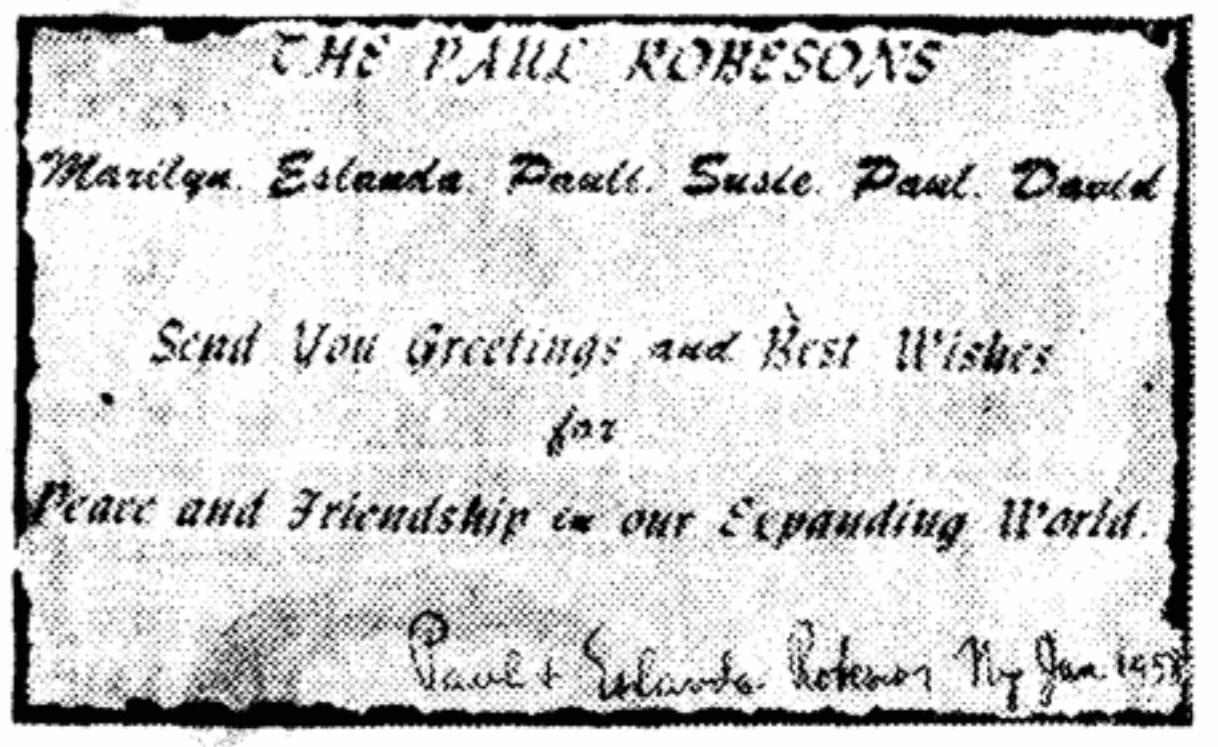 THE PAUL ROBESONS
Marilyn. Eslanda. Pauli. Susie. Paul. David
Send You Greetings and Best Wishes
for
Peace and Friendship in our Expanding World.
Paul + Eslanda Robeson Ny Jan. 1958